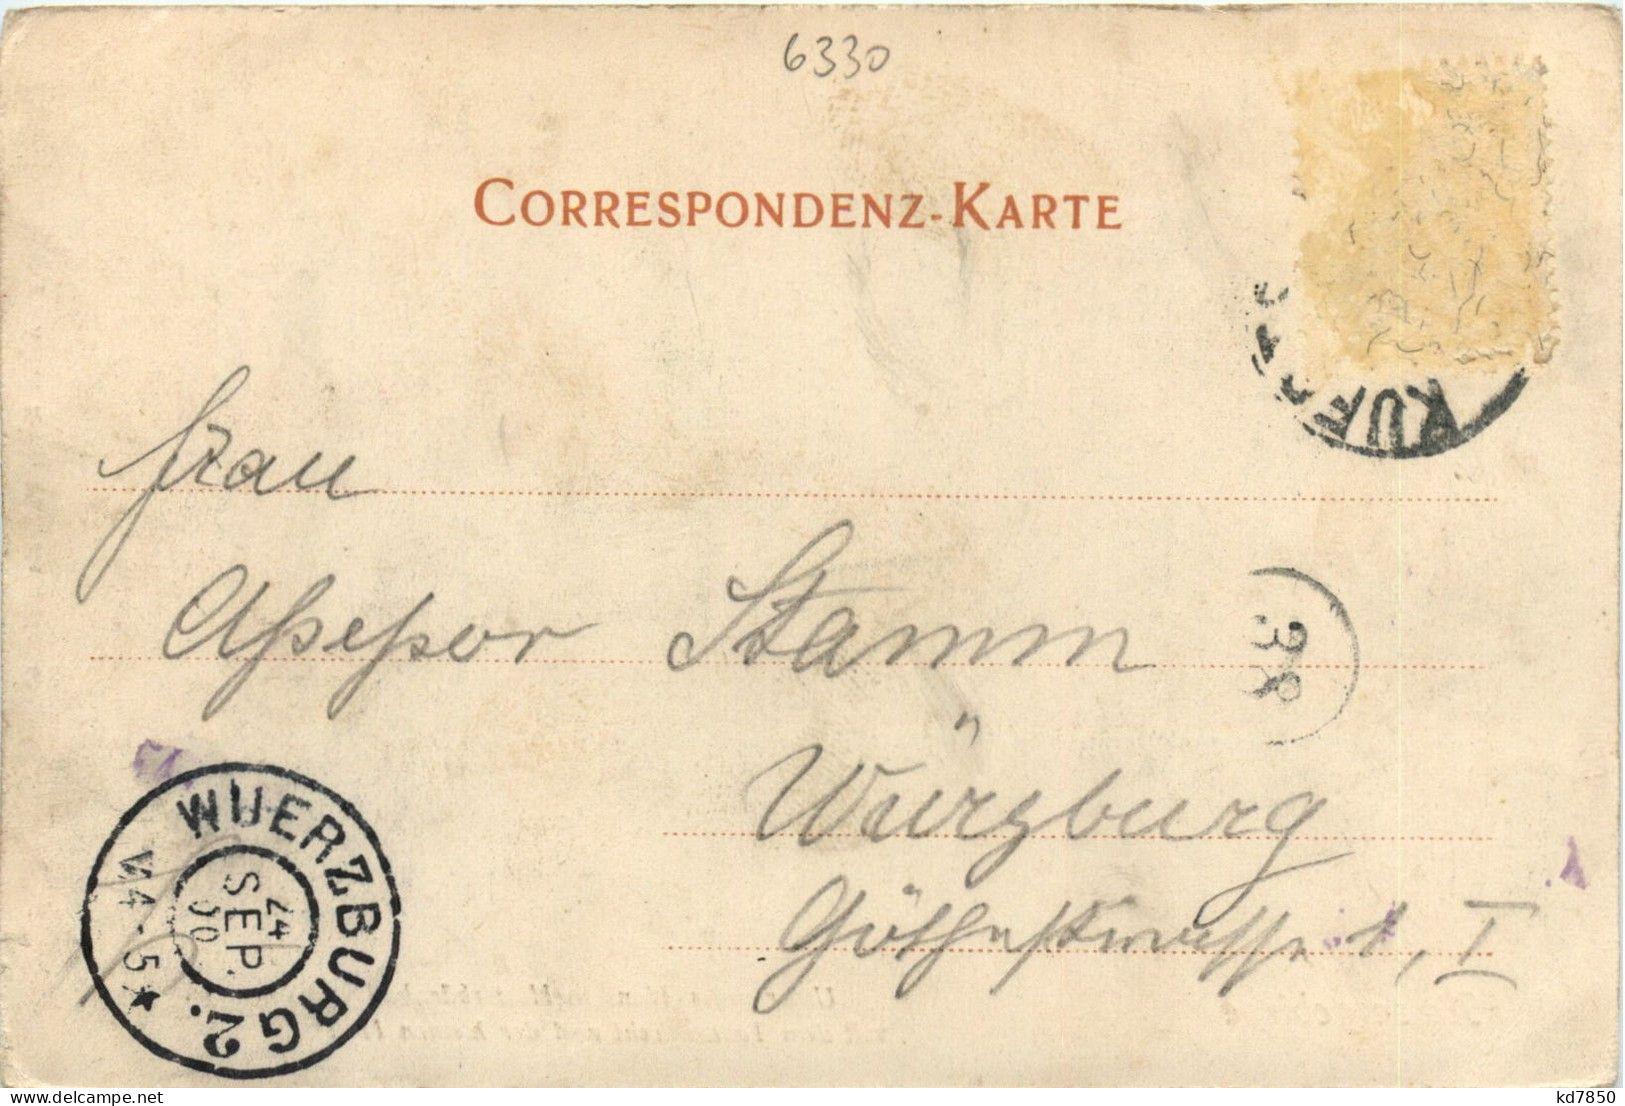 6330
CORRESPONDENZ-KARTE
KUFST
Frau
Assessor Stamm
Würzburg
Göthestrasse 1, I
WUERZBURG 2.
24
SEP.
00
V4-5
kd7850